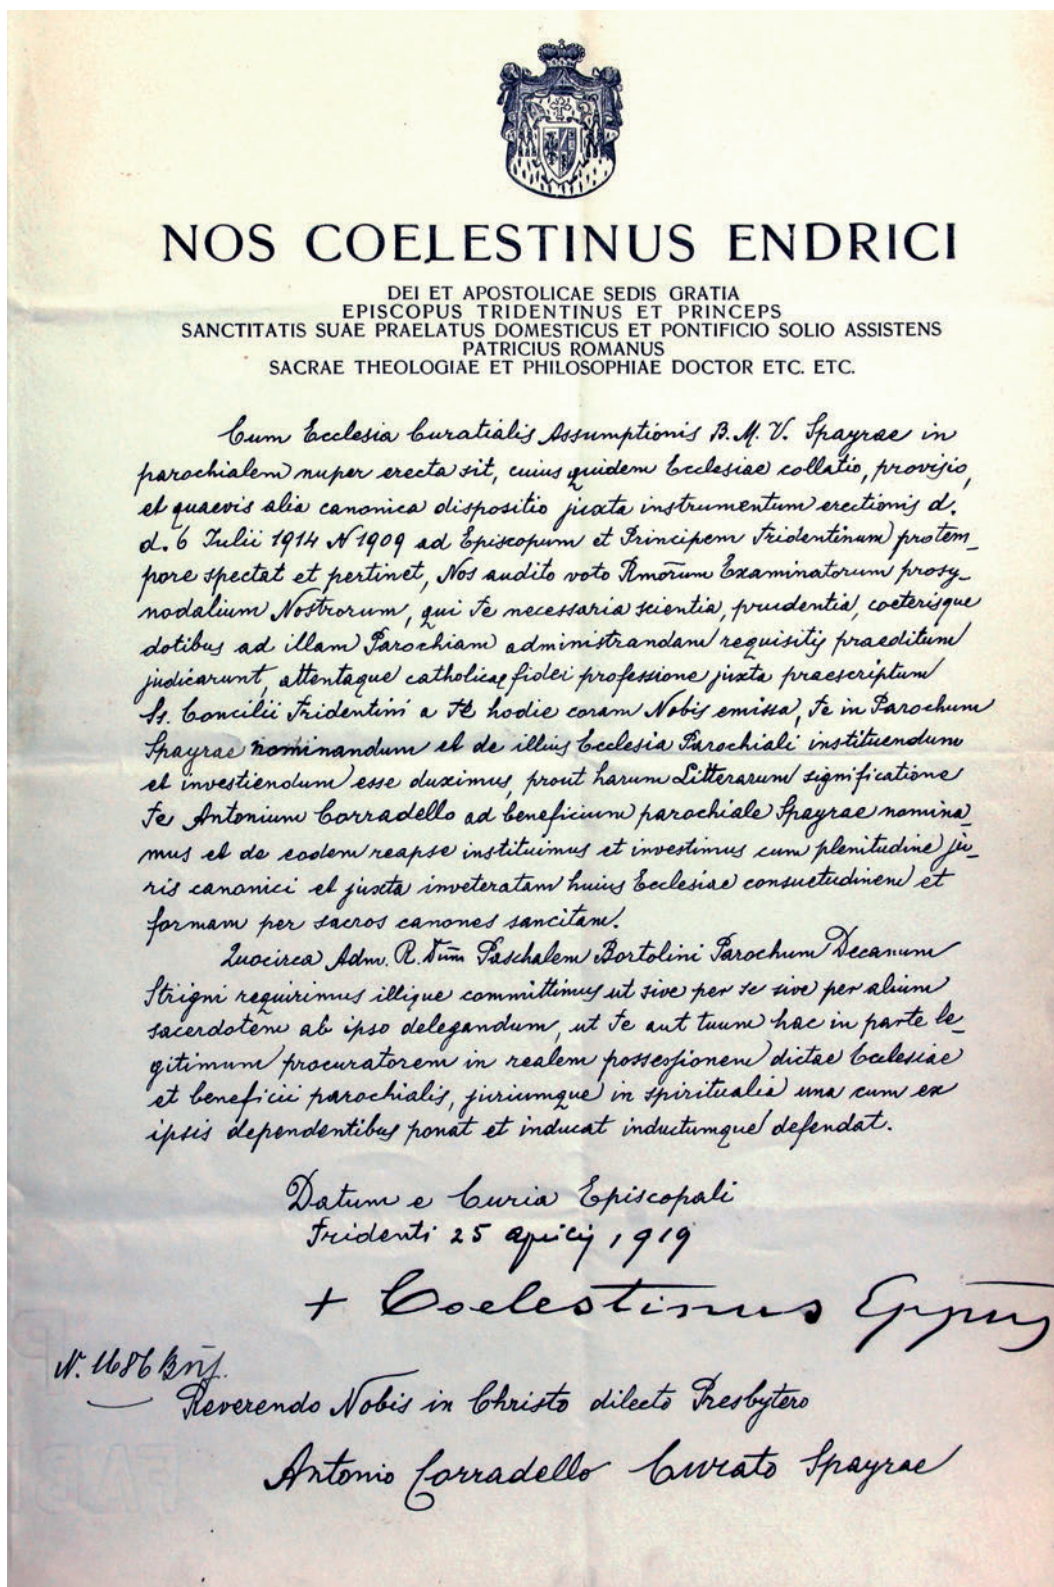 NOS COELESTINUS ENDRICI
DEI ET APOSTOLICAE SEDIS GRATIA
EPISCOPUS TRIDENTINUS ET PRINCEPS
SANCTITATIS SUAE PRAELATUS DOMESTICUS ET PONTIFICIO SOLIO ASSISTENS
PATRICIUS ROMANUS
SACRAE THEOLOGIAE ET PHILOSOPHIAE DOCTOR ETC. ETC.
Cum Ecclesia Curatialis Assumptionis B. M. V. Spayrae in
parochialem nuper erecta sit, cuius quidem Ecclesiae collatio, provisio,
et quaevis alia canonica dispositio juxta instrumentum erectionis d.
d. 6 Iulii 1914 N 1909 ad Episcopum et Principem Tridentinum protem_
pore spectat et pertinet, Nos audito voto Rmorum Examinatorum prosy_
nodalium Nostrorum, qui Te necessaria scientia, prudentia, coeterisque
dotibus ad illam Parochiam administrandam requisitis praeditum
judicarunt, attentaque catholicae fidei professione juxta praescriptum
Ss. Concilii Tridentini a Te hodie coram Nobis emissa, Te in Parochum
Spayrae nominandum et de illius Ecclesia Parochiali instituendum
et investiendum esse duximus, prout harum Litterarum significatione
Te Antonium Corradello ad beneficium parochiale Spayrae nomina_
mus et de eodem reapse instituimus et investimus cum plenitudine ju_
ris canonici et juxta inveteratam huius Ecclesiae consuetudinem et
formam per sacros canones sancitam.
Quocirca Adm. R. Dum Paschalem Bortolini Parochum Decanum
Strigni requirimus illique committimus ut sive per se sive per alium
sacerdotem ab ipso delegandum, ut Te aut tuum hac in parte le_
gitimum procuratorem in realem possessionem dictae Ecclesiae
et beneficii parochialis, juriumque in spiritualia una cum ex
ipsis dependentibus ponat et inducat inductumque defendat.
Datum e Curia Episcopali
Tridenti 25 aprilis 1919
+ Coelestinus Eppus
N. 1686 Bnf.
Reverendo Nobis in Christo dilecto Presbytero
Antonio Corradello Curato Spayrae